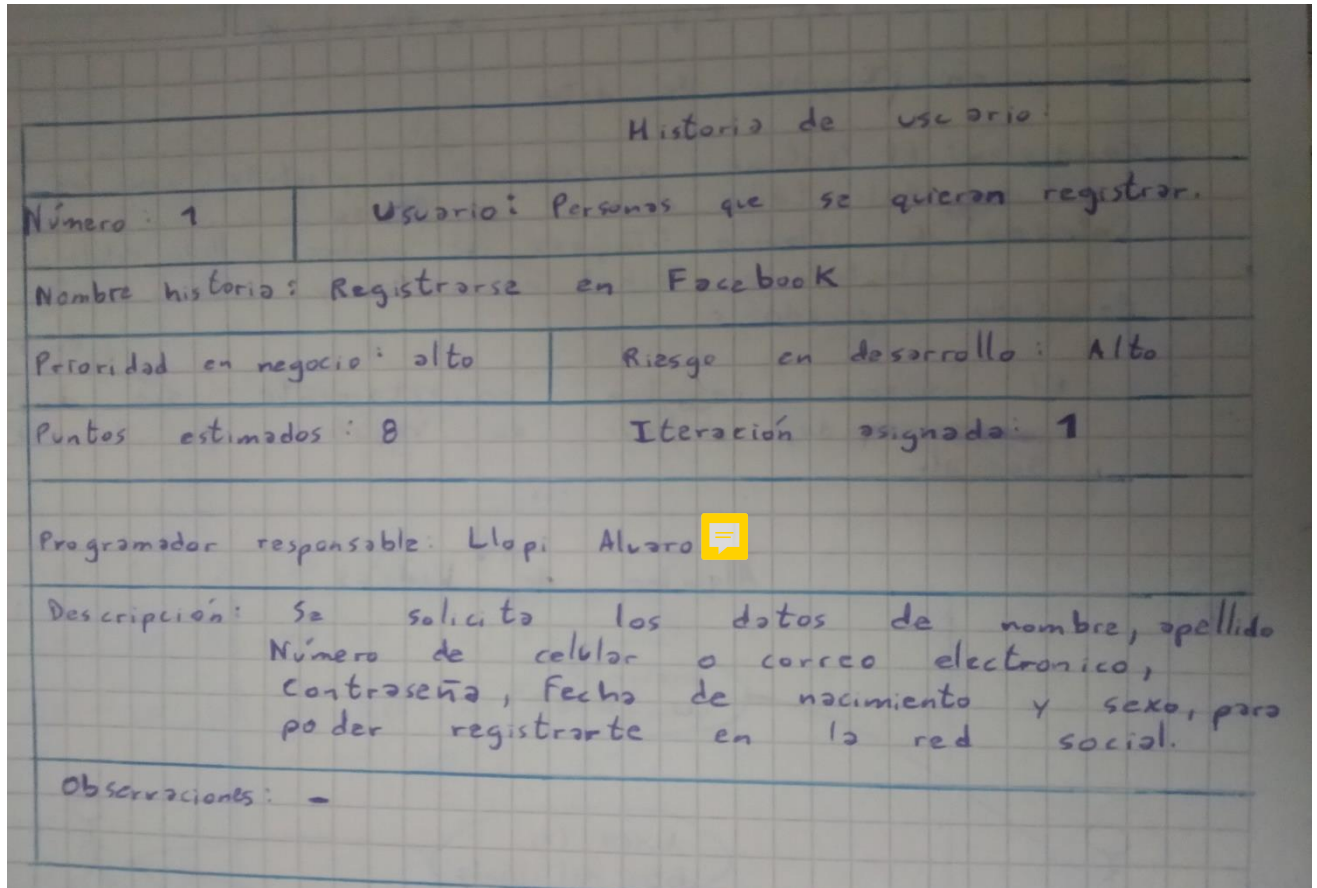 Historia de usuario:
Número: 1 Usuario: Personas que se quieran registrar.
Nombre historia: Registrarse en Facebook
Prioridad en negocio: alto Riesgo en desarrollo: Alto
Puntos estimados: 8 Iteración asignada: 1
Programador responsable: Llopi Alvaro
Descripción: Se solicita los datos de nombre, apellido
Número de celular o correo electronico,
Contraseña, Fecha de nacimiento y sexo, para
poder registrarte en la red social.
Observaciones: -